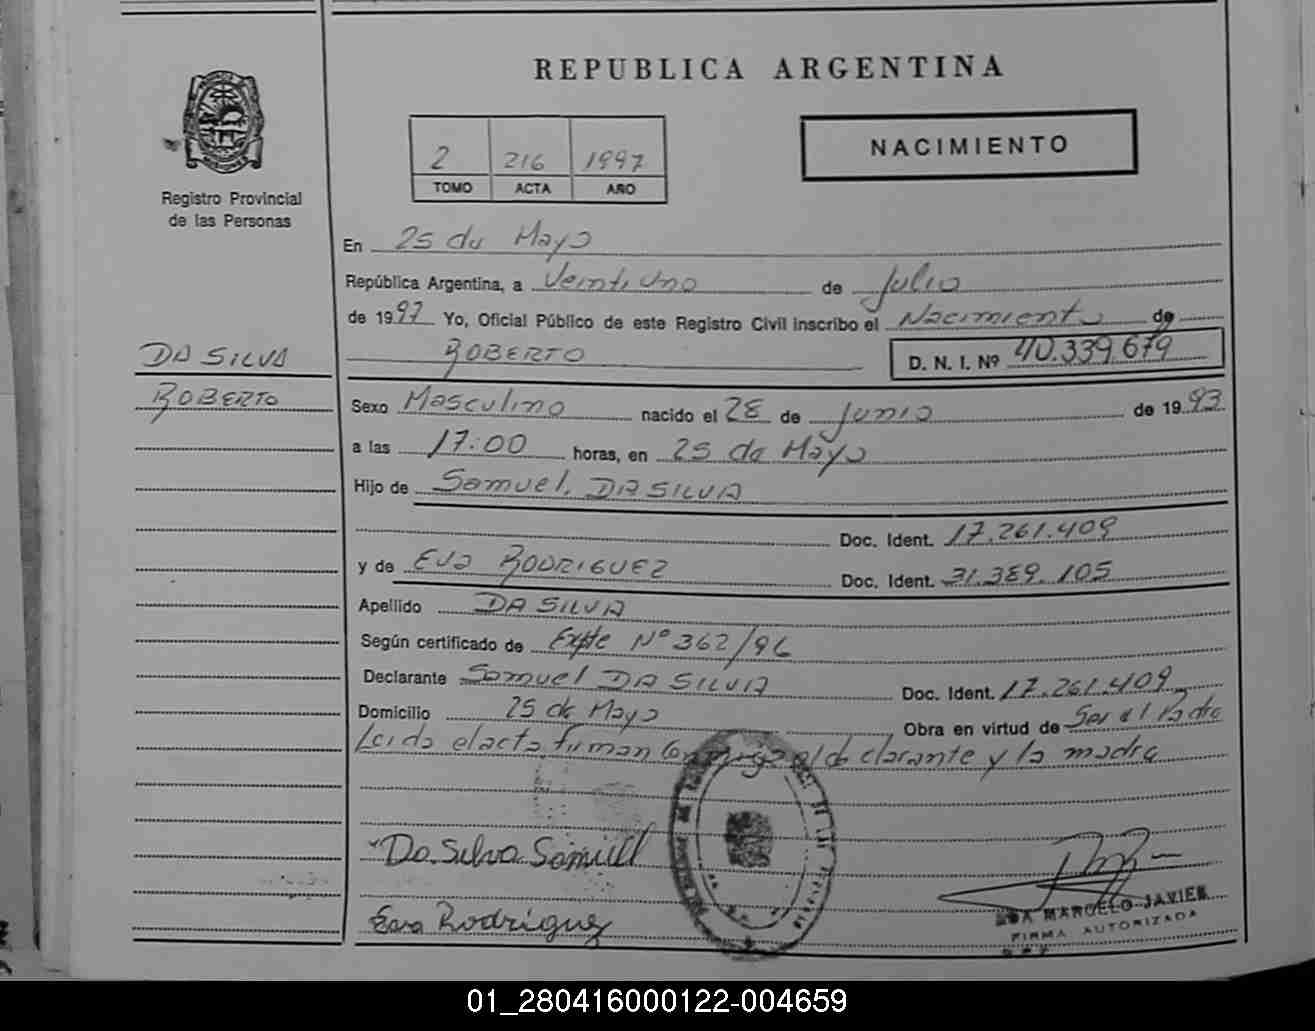 REPUBLICA ARGENTINA
NACIMIENTO
2 216 1997
TOMO ACTA AÑO
Registro Provincial
de las Personas
En 25 de Mayo
República Argentina, a Veintiuno de Julio
de 1997 Yo, Oficial Público de este Registro Civil inscribo el Nacimiento de
ROBERTO D. N. I. Nº 40.339.679
DA SILVA
ROBERTO
Sexo Masculino nacido el 28 de Junio de 1993
a las 17:00 horas, en 25 de Mayo
Hijo de Samuel, DA SILVA
Doc. Ident. 17.261.409
y de Eva RODRIGUEZ Doc. Ident. 31.389.105
Apellido DA SILVA
Según certificado de Expte Nº 362/96
Declarante Samuel DA SILVA Doc. Ident. 17.261.409
Domicilio 25 de Mayo Obra en virtud de Ser el Padre
Leida el acta firman conmigo el declarante y la madre
Da Silva Samuel
Eva Rodriguez
MARCELO JAVIER
FIRMA AUTORIZADA
01_280416000122-004659